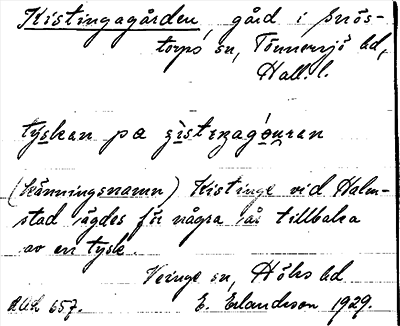 Kistingagården, gård i Snös-
torps sn, Tönnersjö hd,
Hall. l.
tyskan pa
(känningsnamn) Kistinge vid Halm-
stad ägdes för några år tillbaka
av en tysk.
Veinge sn, Höks hd
657. E. Erlandsson 1929.